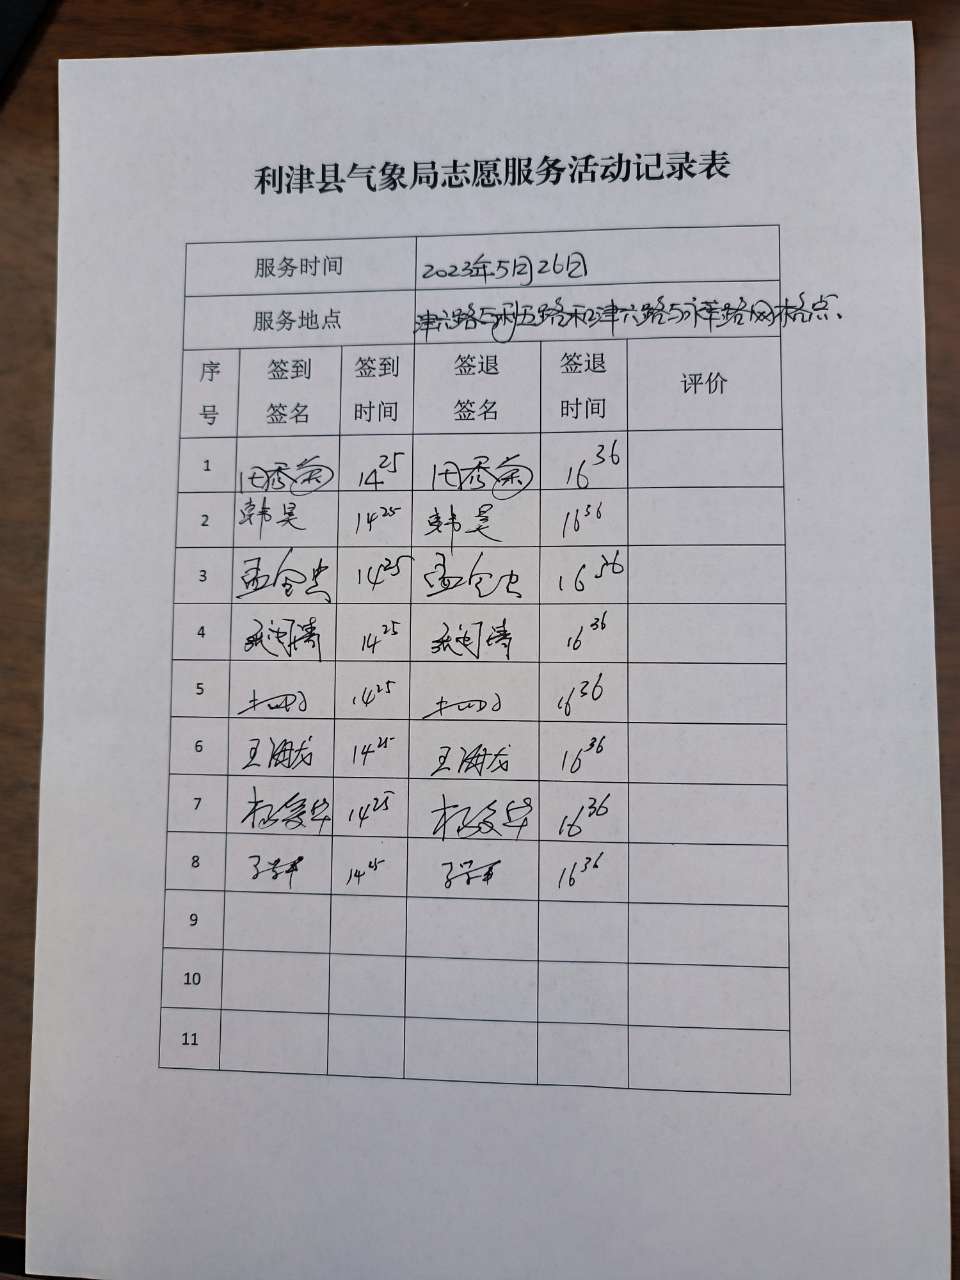 利津县气象局志愿服务活动记录表
服务时间 2023年5月26日
服务地点 津六路与利五路和津六路与祥路网格点、
序号 签到签名 签到时间 签退签名 签退时间 评价
1 田秀菊 14 25 田秀菊 16 36
2 韩昊 14 25 韩昊 16 36
3 孟全忠 14 25 孟全忠 16 36
4 14 25 16 36
5 14 25 16 36
6 王海龙 14 25 王海龙 16 36
7 杨爱华 14 25 杨爱华 16 36
8 14 25 16 36
9
10
11